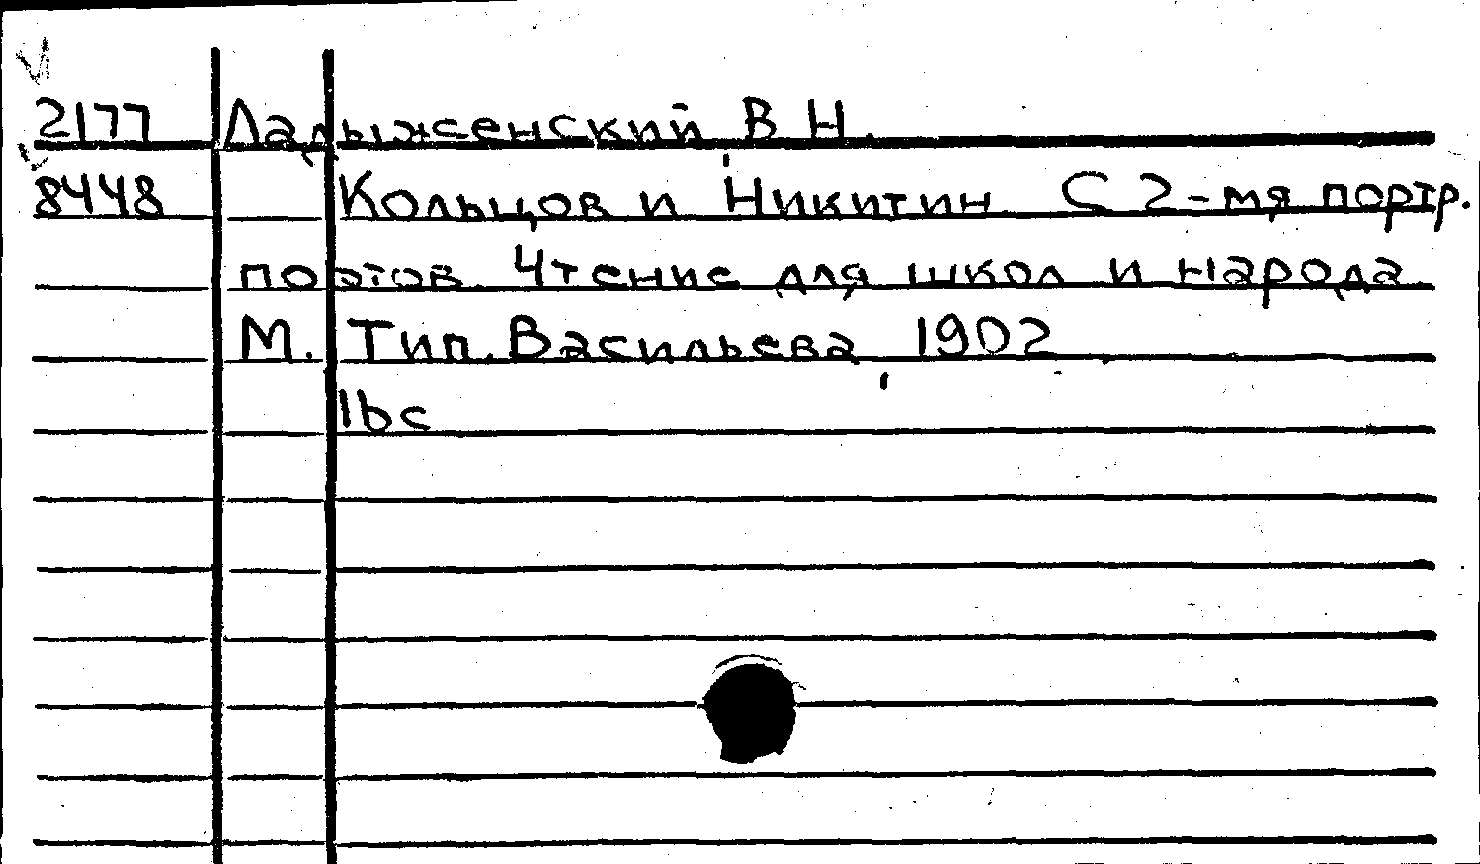 2177 Ладыженский В. Н.
8448 Кольцов и Никитин. С 2-мя портр.
поэтов. Чтение для школ и народа.
М. Тип. Васильева, 1902
16с